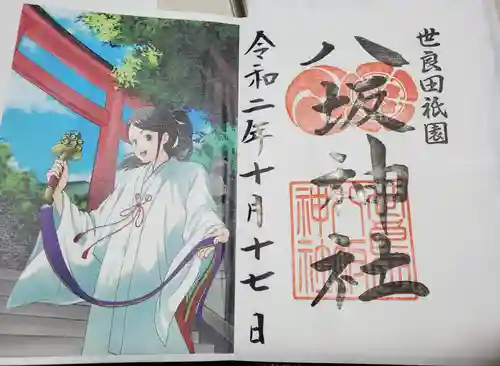 世良田祇園
八坂神社
令和二年十月十七日